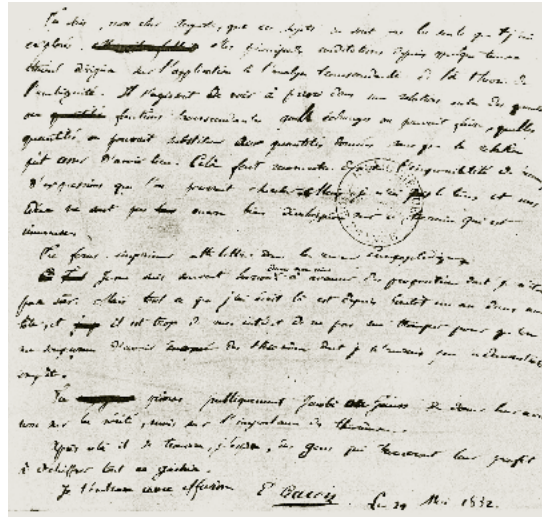 Tu sais, mon cher Auguste, que ces sujets ne sont pas les seuls que j'aie
explorés. Mes principales méditations depuis quelque temps
étaient dirigées sur l'application à l'analyse transcendante de la théorie de
l'ambiguité. Il s'agissait de voir a priori dans une relation entre des quantités
ou fonctions transcendantes quels échanges on pouvait faire, quelles
quantités on pouvait substituer aux quantités données sans que la relation
put cesser d'avoir lieu. Cela fait reconnaitre l'impossibilité de
d'expressions que l'on pourrait chercher. Mais je n'ai pas le tems et mes
idées ne sont pas encore bien développées sur ce terrain qui est
immense.
Tu feras imprimer cette lettre dans la revue encyclopédique.
Je me suis souvent hasardé dans ma vie à avancer des propositions dont je n'étais
pas sûr. Mais tout ce que j'ai écrit là est depuis bientôt un an dans ma
tête, et il est trop de mon intérêt de ne pas me tromper pour qu'on
me soupçonne d'avoir énoncé des théorèmes dont je n'aurais pas la démonstration
complète.
Tu prieras publiquement Jacobi ou Gauss de donner leur avis
non sur la vérité, mais sur l'importance des théorèmes.
Après cela il se trouvera, j'espère, des gens qui trouveront leur profit
à déchiffrer tout ce gachis.
Je t'embrasse avec effusion E Galois Le 29 Mai 1832.